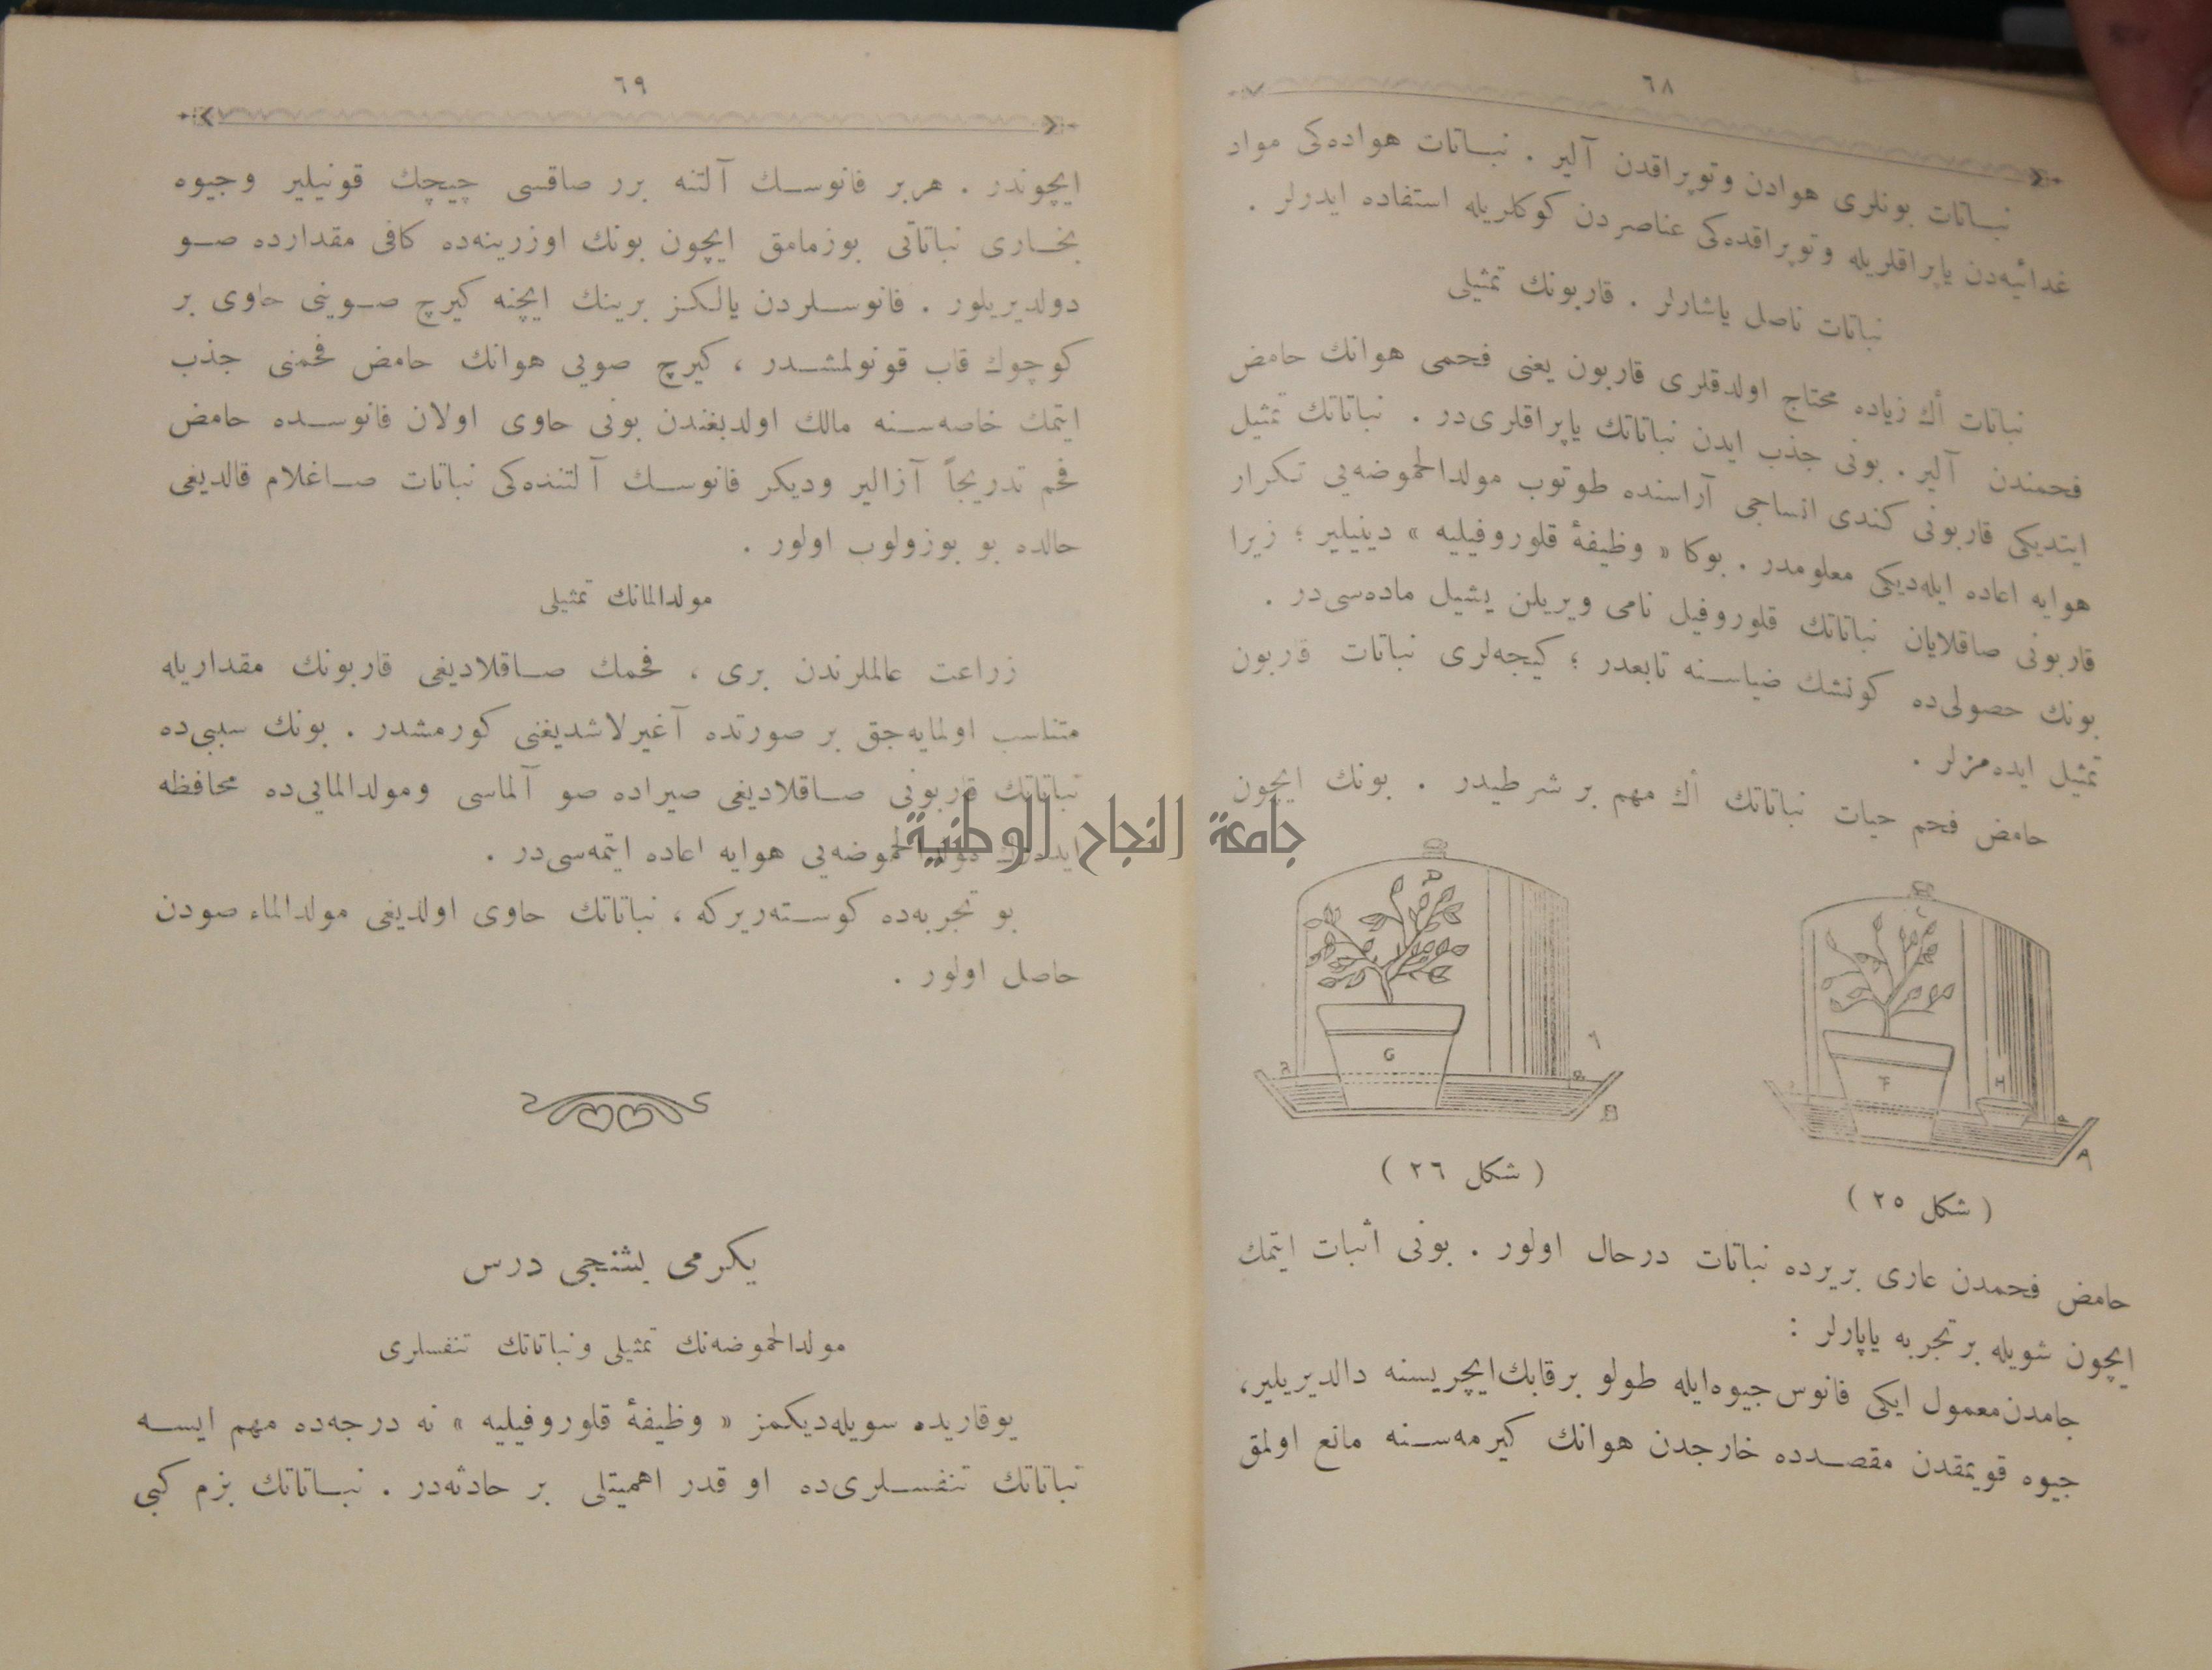 ٦٨
نباتات بونلرى هوادن وتوپراقدن آلير . نباتات هواده‌كى مواد
غدائيه‌دن ياپراقلريله وتوپراقده‌كى عناصردن كوكلريله استفاده ايدرلر .
نباتات ناصل ياشارلر . قاربونك تمثيلى
نباتات أك زياده محتاج اولدقلرى قاربون يعنى فحمى هوانك حامض
فحمندن آلير . بونى جذب ايدن نباتاتك ياپراقلرى‌در . نباتاتك تمثيل
ايتديكى قاربونى كندى انساجى آراسنده طوتوب مولدالحموضه‌يى تكرار
هوايه اعاده ايله‌ديكى معلومدر . بوكا « وظيفۀ قلوروفيليه » دينيلير ؛ زيرا
قاربونى صاقلايان نباتاتك قلوروفيل نامى ويريلن يشيل ماده‌سى‌در .
بونك حصولى‌ده كونشك ضياسنه تابعدر ؛ كيجه‌لرى نباتات قاربون
تمثيل ايده‌مزلر .
حامض فحم حيات نباتاتك أك مهم بر شرطيدر . بونك ايچون
D
G
a
a
B
F
H
a
A
( شكل ٢٥ )
( شكل ٢٦ )
حامض فحمدن عارى بريرده نباتات درحال اولور . بونى اثبات ايتمك
ايچون شويله برتجربه ياپارلر :
جامدن‌معمول ايكى فانوس‌جيوه‌ايله طولو برقابك‌ايچريسنه دالديريلير،
جيوه قويمقدن مقصدده خارجدن هوانك كيرمه‌سنه مانع اولمق
٦٩
ايچوندر . هربر فانوسك آلتنه برر صاقسى چيچك قونيلير وجيوه
بخارى نباتاتى بوزمامق ايچون بونك اوزرينه‌ده كافى مقدارده صو
دولديريلور . فانوسلردن يالكز برينك ايچنه كيرچ صوينى حاوى بر
كوچوك قاب قونولمشدر ، كيرچ صويى هوانك حامض فحمنى جذب
ايتمك خاصه‌سنه مالك اولديغندن بونى حاوى اولان فانوسده حامض
فحم تدريجاً آزالير وديكر فانوسك آلتنده‌كى نباتات صاغلام قالديغى
حالده بو بوزولوب اولور .
مولدالمانك تمثيلى
زراعت عالملرندن برى ، فحمك صاقلاديغى قاربونك مقداريله
متناسب اولمايه‌جق بر صورتده آغيرلاشديغنى كورمشدر . بونك سببى‌ده
نباتاتك قاربونى صاقلاديغى صيراده صو آلماسى ومولدالمايى‌ده محافظه
ايدرك مولدالحموضه‌يى هوايه اعاده ايتمه‌سى‌در .
بو تجربه‌ده كوسته‌ريركه ، نباتاتك حاوى اولديغى مولدالماء صودن
حاصل اولور .
يكرمى بشنجى درس
مولدالحموضه‌نك تمثيلى ونباتاتك تنفسلرى
يوقاريده سويله‌ديكمز « وظيفۀ قلوروفيليه » نه درجه‌ده مهم ايسه
نباتاتك تنفسلرى‌ده او قدر اهميتلى بر حادثه‌در . نباتاتك بزم كبى
جامعة النجاح الوطنية